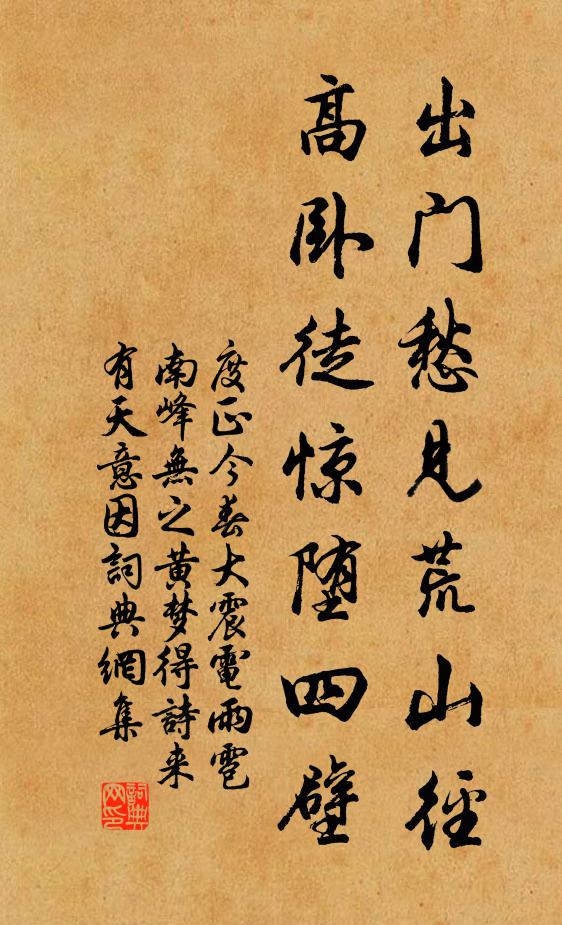 出门愁見荒山径
高卧徒惊堕四壁
度正今春大震電雨雹
南峰無之黄梦得詩来
有天意因詞典網集
詞典网印